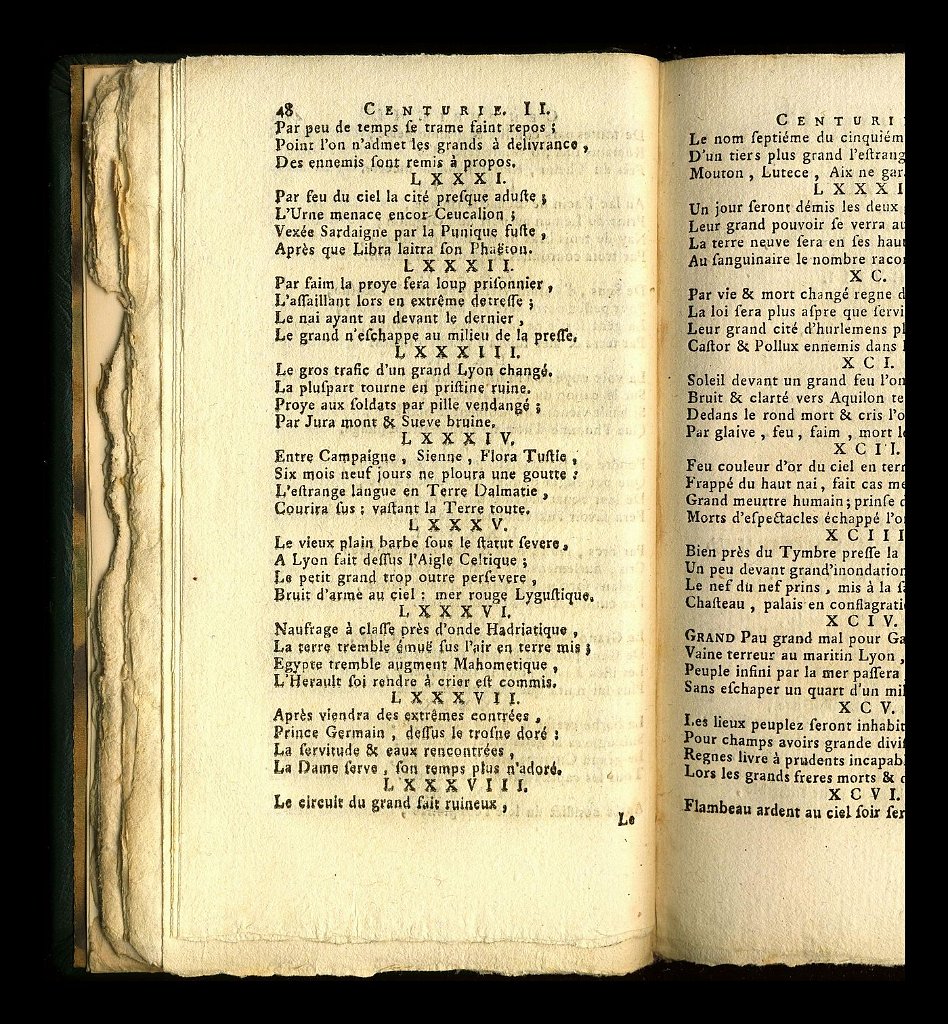 48 CENTURIE. II.
Par peu de temps ſe trame faint repos ;
Point l'on n'admet les grands à délivrance ,
Des ennemis ſont remis à propos.
LXXXI.
Par feu du ciel la cité preſque aduſte ;
L'Urne menace encor Ceucalion ;
Vexée Sardaigne par la Punique fuſte ,
Après que Libra laitra ſon Phaëton.
LXXXII.
Par faim la proye ſera loup priſonnier ,
L'aſſaillant lors en extrême detreſſe ;
Le nai ayant au devant le dernier ,
Le grand n'eſchappe au milieu de la preſſe.
LXXXIII.
Le gros trafic d'un grand Lyon changé.
La pluſpart tourne en priſtine ruine.
Proye aux ſoldats par pille vendangé ;
Par Jura mont & Sueve bruine.
LXXXIV.
Entre Campaigne , Sienne , Flora Tuſtie ,
Six mois neuf jours ne ploura une goutte :
L'eſtrange langue en Terre Dalmatie ,
Courira ſus : vaſtant la Terre toute.
LXXXV.
Le vieux plain barbe ſous le ſtatut ſevere,
A Lyon fait deſſus l'Aigle Celtique ;
Le petit grand trop outre perſevere ,
Bruit d'arme au ciel : mer rouge Lyguſtique.
LXXXVI.
Naufrage à claſſe près d'onde Hadriatique ,
La terre tremble émuë ſus l'air en terre mis ;
Egypte tremble augment Mahometique ,
L'Herault ſoi rendre à crier eſt commis.
LXXXVII.
Après viendra des extrêmes contrées ,
Prince Germain , deſſus le troſne doré :
La ſervitude & eaux rencontrées ,
La Dame ſerve , ſon temps plus n'adoré.
LXXXVIII.
Le circuit du grand fait ruineux ,
Le
CENTURI
Le nom ſeptiéme du cinquiém
D'un tiers plus grand l'eſtrang
Mouton , Lutece , Aix ne gar
LXXXI
Un jour ſeront démis les deux
Leur grand pouvoir ſe verra au
La terre neuve ſera en ſes haut
Au ſanguinaire le nombre raco
XC.
Par vie & mort changé regne d
La loi ſera plus aſpre que ſervi
Leur grand cité d'hurlemens pl
Caſtor & Pollux ennemis dans
XCI.
Soleil devant un grand feu l'on
Bruit & clarté vers Aquilon te
Dedans le rond mort & cris l'o
Par glaive , feu , faim , mort l
XCII.
Feu couleur d'or du ciel en terr
Frappé du haut nai , fait cas me
Grand meurtre humain ; prinſe d
Morts d'eſpectacles échappé l'o
XCIII
Bien près du Tymbre preſſe la
Un peu devant grand'inondation
Le nef du nef prins , mis à la ſ
Chaſteau , palais en conflagrati
XCIV.
GRAND Pau grand mal pour Ga
Vaine terreur au maritin Lyon ,
Peuple infini par la mer paſſera
Sans eſchaper un quart d'un mil
XCV.
Les lieux peuplez ſeront inhabit
Pour champs avoirs grande divi
Regnes livre à prudents incapab
Lors les grands freres morts & d
XCVI.
Flambeau ardent au ciel ſoir ſer